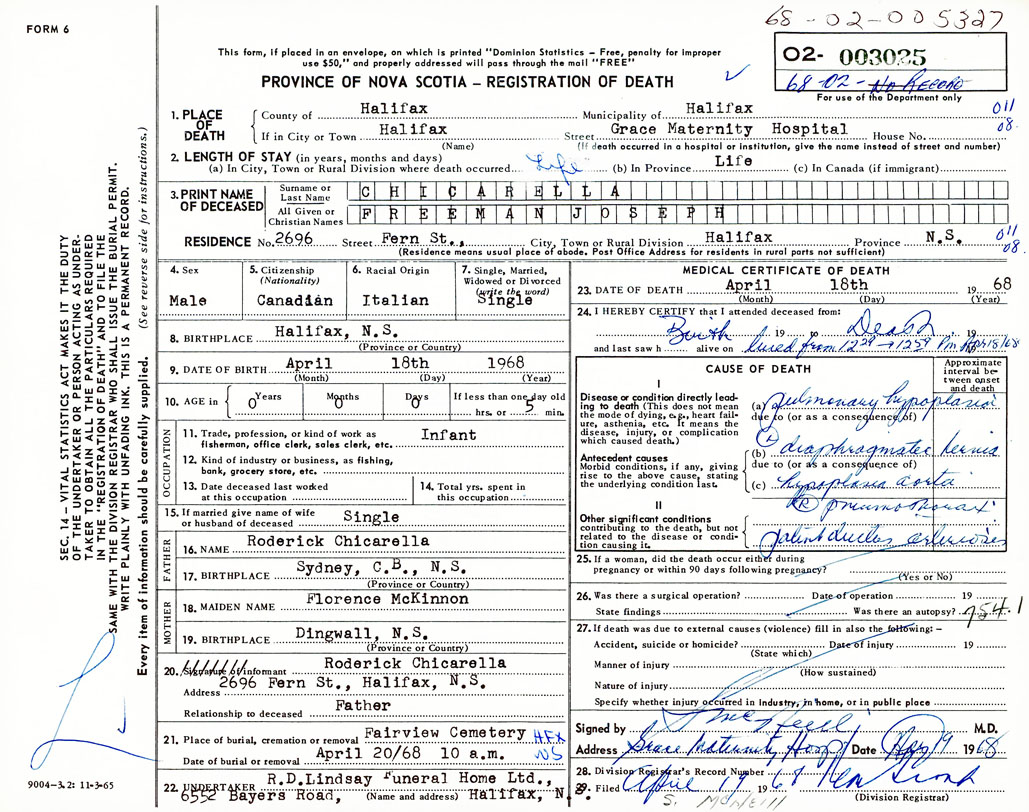 68-02-005327
FORM 6
This form, if placed in an envelope, on which is printed "Dominion Statistics - Free, penalty for improper
use $50," and properly addressed will pass through the mail "FREE"
02- 003025
68-02-No Record
For use of the Department only
PROVINCE OF NOVA SCOTIA - REGISTRATION OF DEATH
1. PLACE OF DEATH
County of Halifax Municipality of Halifax 011
If in City or Town Halifax Street Grace Maternity Hospital House No. 08.
(Name) (If death occurred in a hospital or institution, give the name instead of street and number)
2. LENGTH OF STAY (in years, months and days)
(a) In City, Town or Rural Division where death occurred Life (b) In Province Life (c) In Canada (if immigrant)
3. PRINT NAME OF DECEASED
Surname or Last Name CHICARELLA
All Given or Christian Names FREEMAN JOSEPH
RESIDENCE No. 2696 Street Fern St., City, Town or Rural Division Halifax Province N.S. 011
08.
(Residence means usual place of abode. Post Office Address for residents in rural parts not sufficient)
4. Sex
Male
5. Citizenship
(Nationality)
Canadian
6. Racial Origin
Italian
7. Single, Married,
Widowed or Divorced
(write the word)
Single
8. BIRTHPLACE Halifax, N.S.
(Province or Country)
9. DATE OF BIRTH April 18th 1968
(Month) (Day) (Year)
10. AGE in Years 0 Months 0 Days 0 If less than one day old
hrs. or 5 min.
OCCUPATION
11. Trade, profession, or kind of work as Infant
fisherman, office clerk, sales clerk, etc.
12. Kind of industry or business, as fishing,
bank, grocery store, etc.
13. Date deceased last worked
at this occupation
14. Total yrs. spent in
this occupation
15. If married give name of wife
or husband of deceased Single
FATHER
16. NAME Roderick Chicarella
17. BIRTHPLACE Sydney, C.B., N.S.
(Province or Country)
MOTHER
18. MAIDEN NAME Florence McKinnon
19. BIRTHPLACE Dingwall, N.S.
(Province or Country)
20. Signature of informant Roderick Chicarella
Address 2696 Fern St., Halifax, N.S.
Relationship to deceased Father
21. Place of burial, cremation or removal Fairview Cemetery HFX
Date of burial or removal April 20/68 10 a.m. NS
22. UNDERTAKER R.D.Lindsay Funeral Home Ltd.,
6552 Bayers Road, (Name and address) Halifax, N.
MEDICAL CERTIFICATE OF DEATH
23. DATE OF DEATH April 18th 19 68
(Month) (Day) (Year)
24. I HEREBY CERTIFY that I attended deceased from:
Birth 19 to Death 19
and last saw h alive on lived from 1224 → 1229 Pm Apr 18/68
CAUSE OF DEATH
Approximate
interval be-
tween onset
and death
I
Disease or condition directly lead-
ing to death (This does not mean
the mode of dying, e.g., heart fail-
ure, asthenia, etc. It means the
disease, injury, or complication
which caused death.)
(a) pulmonary hypoplasia
due to (or as a consequence of)
Antecedent causes
Morbid conditions, if any, giving
rise to the above cause, stating
the underlying condition last.
(L)
(b) diaphragmatic hernia
due to (or as a consequence of)
(c) hypoplasia aorta
II
Other significant conditions
contributing to the death, but not
related to the disease or condi-
tion causing it.
(R) pneumothorax
patent ductus arteriosis
25. If a woman, did the death occur either during
pregnancy or within 90 days following pregnancy?
(Yes or No)
26. Was there a surgical operation? Date of operation 19
State findings Was there an autopsy? 754.1
27. If death was due to external causes (violence) fill in also the following: -
Accident, suicide or homicide? Date of injury 19
(State which)
Manner of injury
(How sustained)
Nature of injury
Specify whether injury occurred in industry, in home, or in public place
Signed by M.D.
Address Grace Maternity Hosp Date Apr 19 1968
28. Division Registrar's Record Number
29. Filed April 19 1968
(Division Registrar)
S. McNeill
SEC. 14 - VITAL STATISTICS ACT MAKES IT THE DUTY
OF THE UNDERTAKER OR PERSON ACTING AS UNDER-
TAKER TO OBTAIN ALL THE PARTICULARS REQUIRED
IN THE "REGISTRATION OF DEATH" AND TO FILE THE
SAME WITH THE DIVISION REGISTRAR WHO SHALL ISSUE THE BURIAL PERMIT.
WRITE PLAINLY WITH UNFADING INK. THIS IS A PERMANENT RECORD.
Every item of information should be carefully supplied. (See reverse side for instructions.)
9004-3.2: 11-3-65